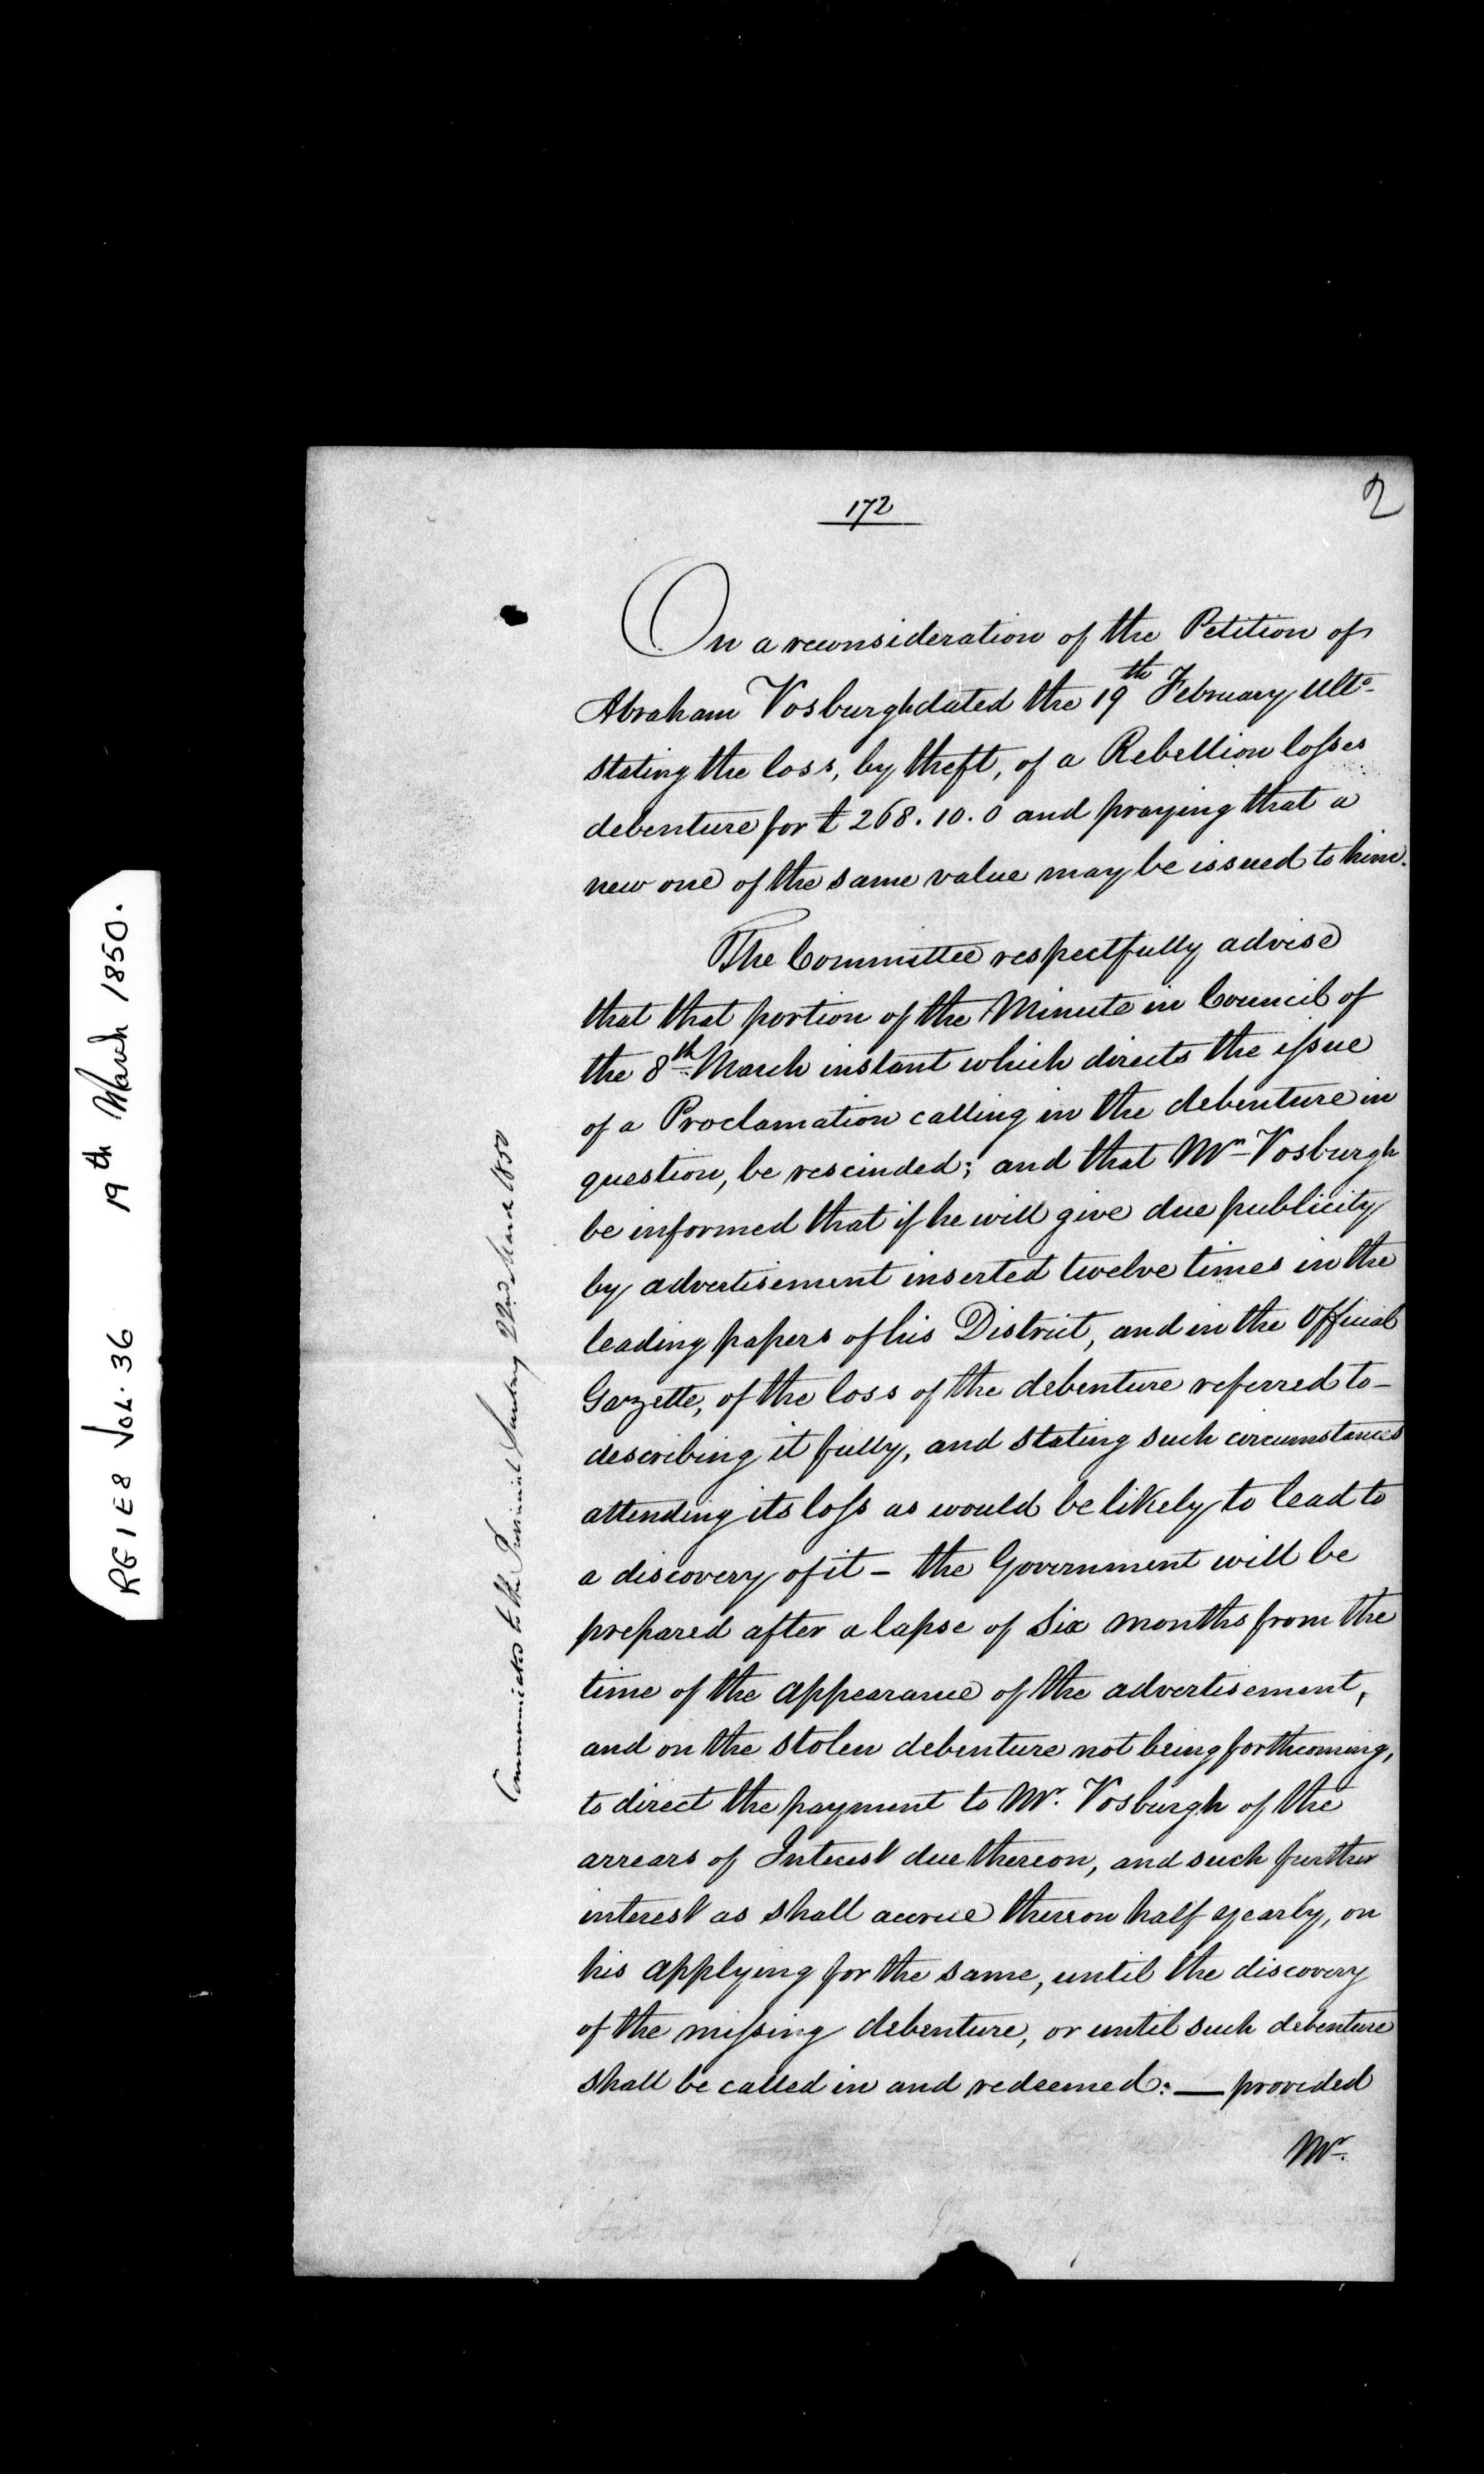 172
2
On a reconsideration of the Petition of
Abraham Vosburgh dated the 19th February Ulto
stating the loss, by theft, of a Rebellion losses
debenture for £ 268. 10. 0 and praying that a
new one of the same value may be issued to him.
The Committee respectfully advise
that that portion of the Minute in Council of
the 8th March instant which directs the issue
of a Proclamation calling in the debenture in
question, be rescinded; and that Mr Vosburgh
be informed that if he will give due publicity
by advertisement inserted twelve times in the
leading papers of his District, and in the Official
Gazette, of the loss of the debenture referred to -
describing it fully, and stating such circumstances
attending its loss as would be likely to lead to
a discovery of it - the Government will be
prepared after a lapse of Six months from the
time of the appearance of the advertisement,
and on the stolen debenture not being forthcoming,
to direct the payment to Mr. Vosburgh of the
arrears of Interest due thereon, and such further
interest as shall accrue thereon half yearly, on
his applying for the same, until the discovery
of the missing debenture, or until such debenture
shall be called in and redeemed: — provided
Mr.
Communicated to the Provincial Secretary 22nd March 1850
RG 1 E8 Vol. 36 19th March 1850.